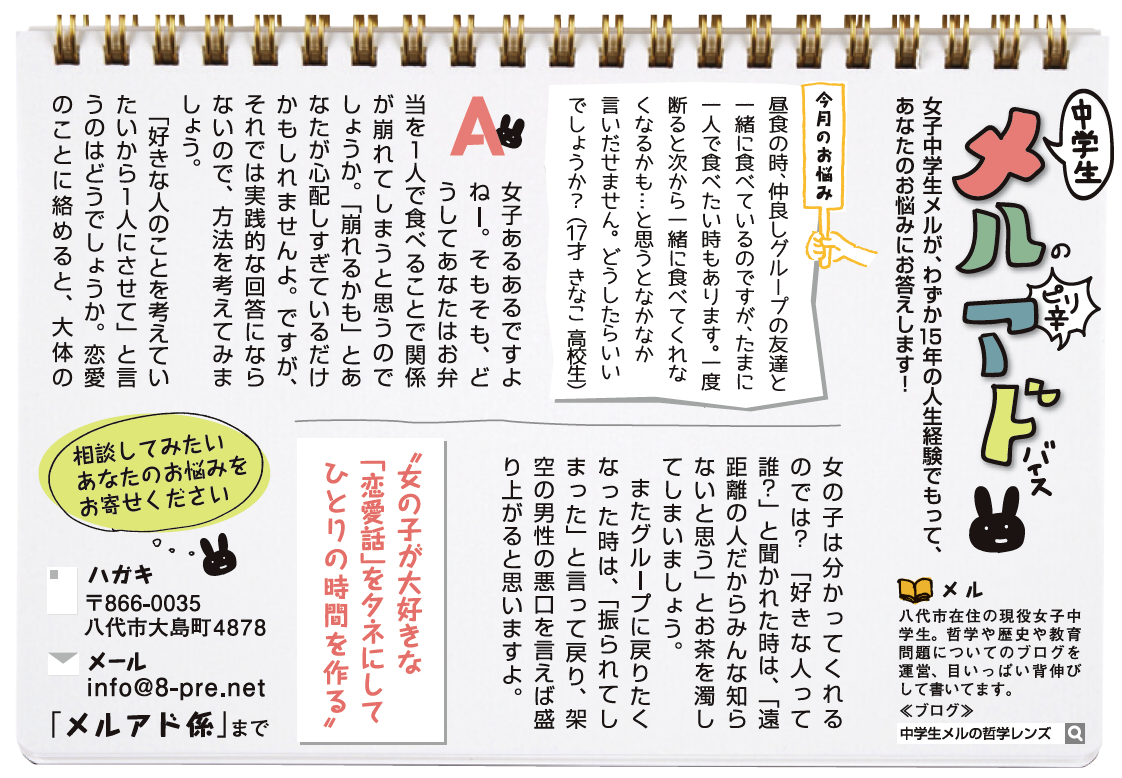 中学生
メルの
ピリ辛
アドバイス
女子中学生メルが、わずか15年の人生経験でもって、
あなたのお悩みにお答えします!
今月のお悩み
昼食の時、仲良しグループの友達と
一緒に食べているのですが、たまに
一人で食べたい時もあります。一度
断ると次から一緒に食べてくれな
くなるかも…と思うとなかなか
言いだせません。どうしたらいい
でしょうか?(17才 きなこ 高校生)
A
女子あるあるですよ
ねー。そもそも、ど
うしてあなたはお弁
当を1人で食べることで関係
が崩れてしまうと思うので
しょうか。「崩れるかも」とあ
なたが心配しすぎているだけ
かもしれませんよ。ですが、
それでは実践的な回答になら
ないので、方法を考えてみま
しょう。
「好きな人のことを考えてい
たいから1人にさせて」と言
うのはどうでしょうか。恋愛
のことに絡めると、大体の
女の子は分かってくれる
のでは?「好きな人って
誰?」と聞かれた時は、「遠
距離の人だからみんな知ら
ないと思う」とお茶を濁し
てしまいましょう。
またグループに戻りたく
なった時は、「振られてし
まった」と言って戻り、架
空の男性の悪口を言えば盛
り上がると思いますよ。
〝女の子が大好きな
「恋愛話」をタネにして
ひとりの時間を作る〟
メル
八代市在住の現役女子中
学生。哲学や歴史や教育
問題についてのブログを
運営、目いっぱい背伸び
して書いてます。
≪ブログ≫
中学生メルの哲学レンズ
相談してみたい
あなたのお悩みを
お寄せください
ハガキ
〒866-0035
八代市大島町4878
メール
info@8-pre.net
「メルアド係」まで